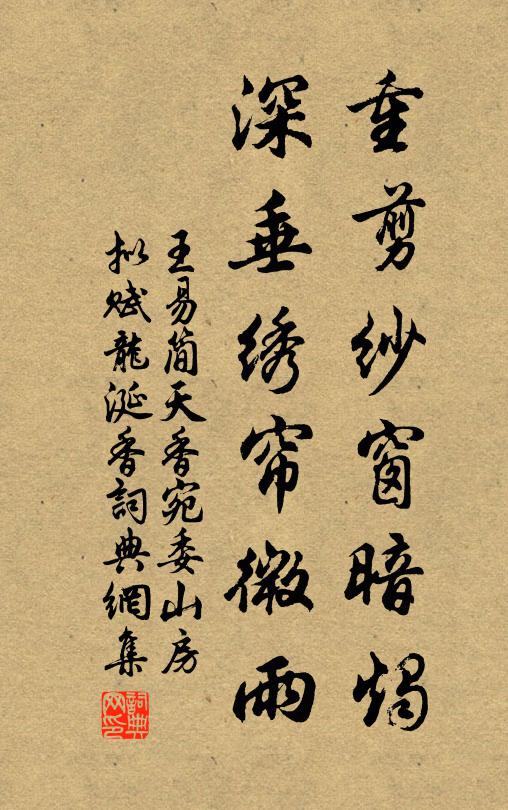 重剪纱窗暗焬
深垂绣帘微雨
王易简天香宛委山房
拟赋龍涎香詞典網集
詞典网印